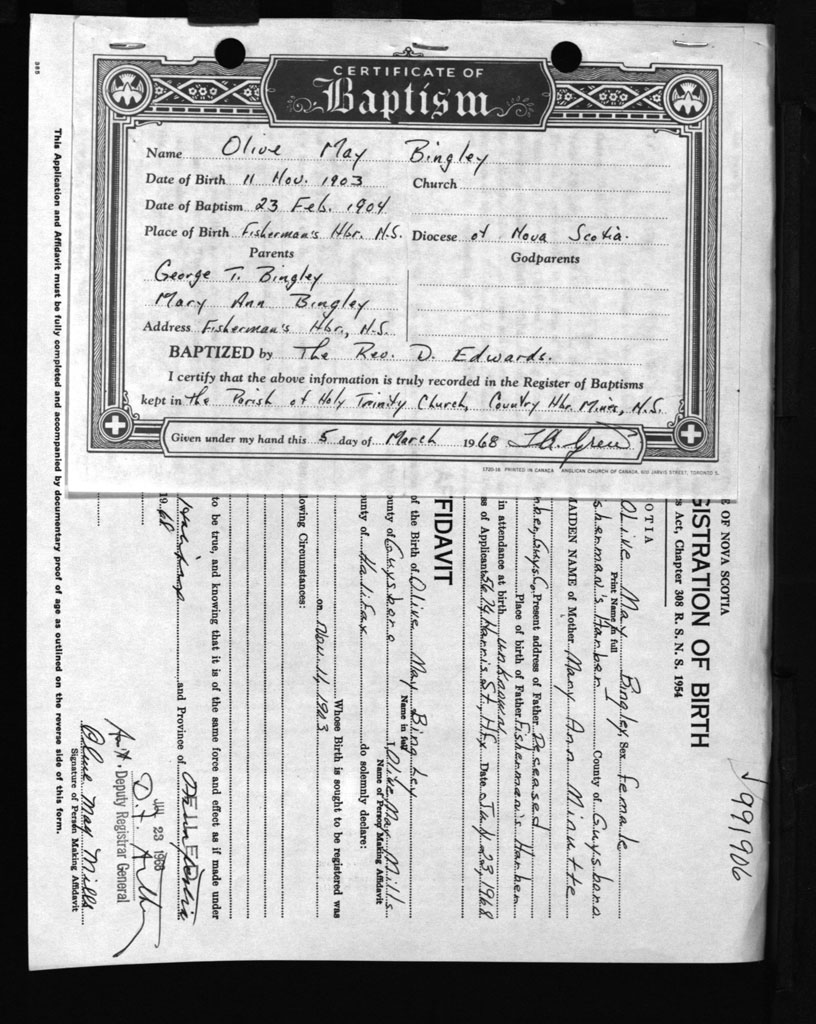 CERTIFICATE OF
Baptism
Name Olive May Bingley
Date of Birth 11 Nov. 1903 Church
Date of Baptism 23 Feb. 1904
Place of Birth Fisherman's Hbr. N.S. Diocese of Nova Scotia.
Parents Godparents
George T. Bingley
Mary Ann Bingley
Address Fisherman's Hbr., N.S.
BAPTIZED by The Rev. D. Edwards.
I certify that the above information is truly recorded in the Register of Baptisms
kept in The Parish of Holy Trinity Church, Country Hbr. Mines, N.S.
Given under my hand this 5 day of March 1968
1720-16 PRINTED IN CANADA ANGLICAN CHURCH OF CANADA, 600 JARVIS STREET, TORONTO 5.
991906
E OF NOVA SCOTIA
GISTRATION OF BIRTH
s Act, Chapter 308 R. S. N. S. 1954
OTIA
Olive May Bingley Sex Female
Print Name in full
sherman's Harber County of Guysboro
MAIDEN NAME of Mother Mary Ann Minutte
nber, Guys Co. Present address of Father Deseased
Place of birth of Father Fisherman's Harber
in attendance at birth unknowiny
ss of Applicant 5674 Harris St. Hfx Date July 23, 1968
FIDAVIT
of the Birth of Olive May Bingley
Name in full
ounty of Guysboro I, Olive May Mills
Name of Person Making Affidavit
ounty of Halifax do solemnly declare:
Whose Birth is sought to be registered was
on Nov. 11, 1903
lowing Circumstances:
to be true, and knowing that it is of the same force and effect as if made under
and Province of
19 68
JUL 23 1968
Deputy Registrar General
Olive May Mills
Signature of Person Making Affidavit
This Application and Affidavit must be fully completed and accompanied by documentary proof of age as outlined on the reverse side of this form.